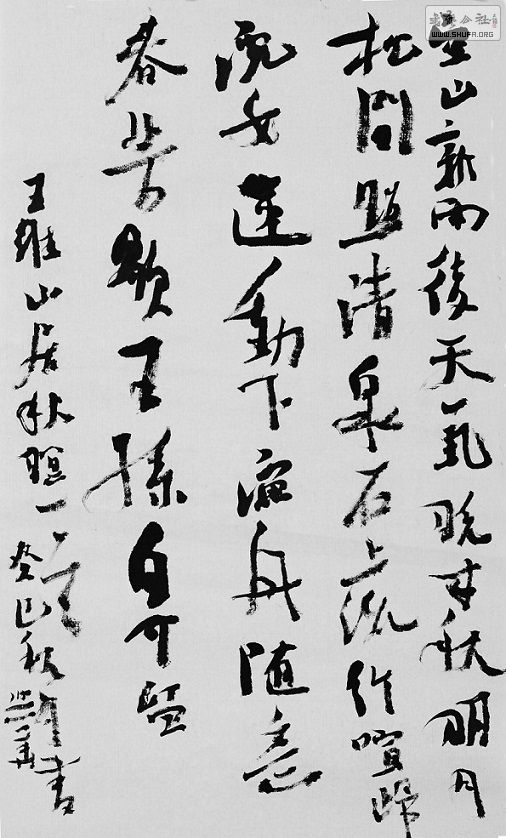 空山新雨後天氣晚来秋明月
松間照清泉石上流竹喧歸
浣女蓮動下漁舟随意
春芳歇王孫自可留
王維山居秋暝一首
癸巳秋書
公社
WWW.SHUFA.ORG